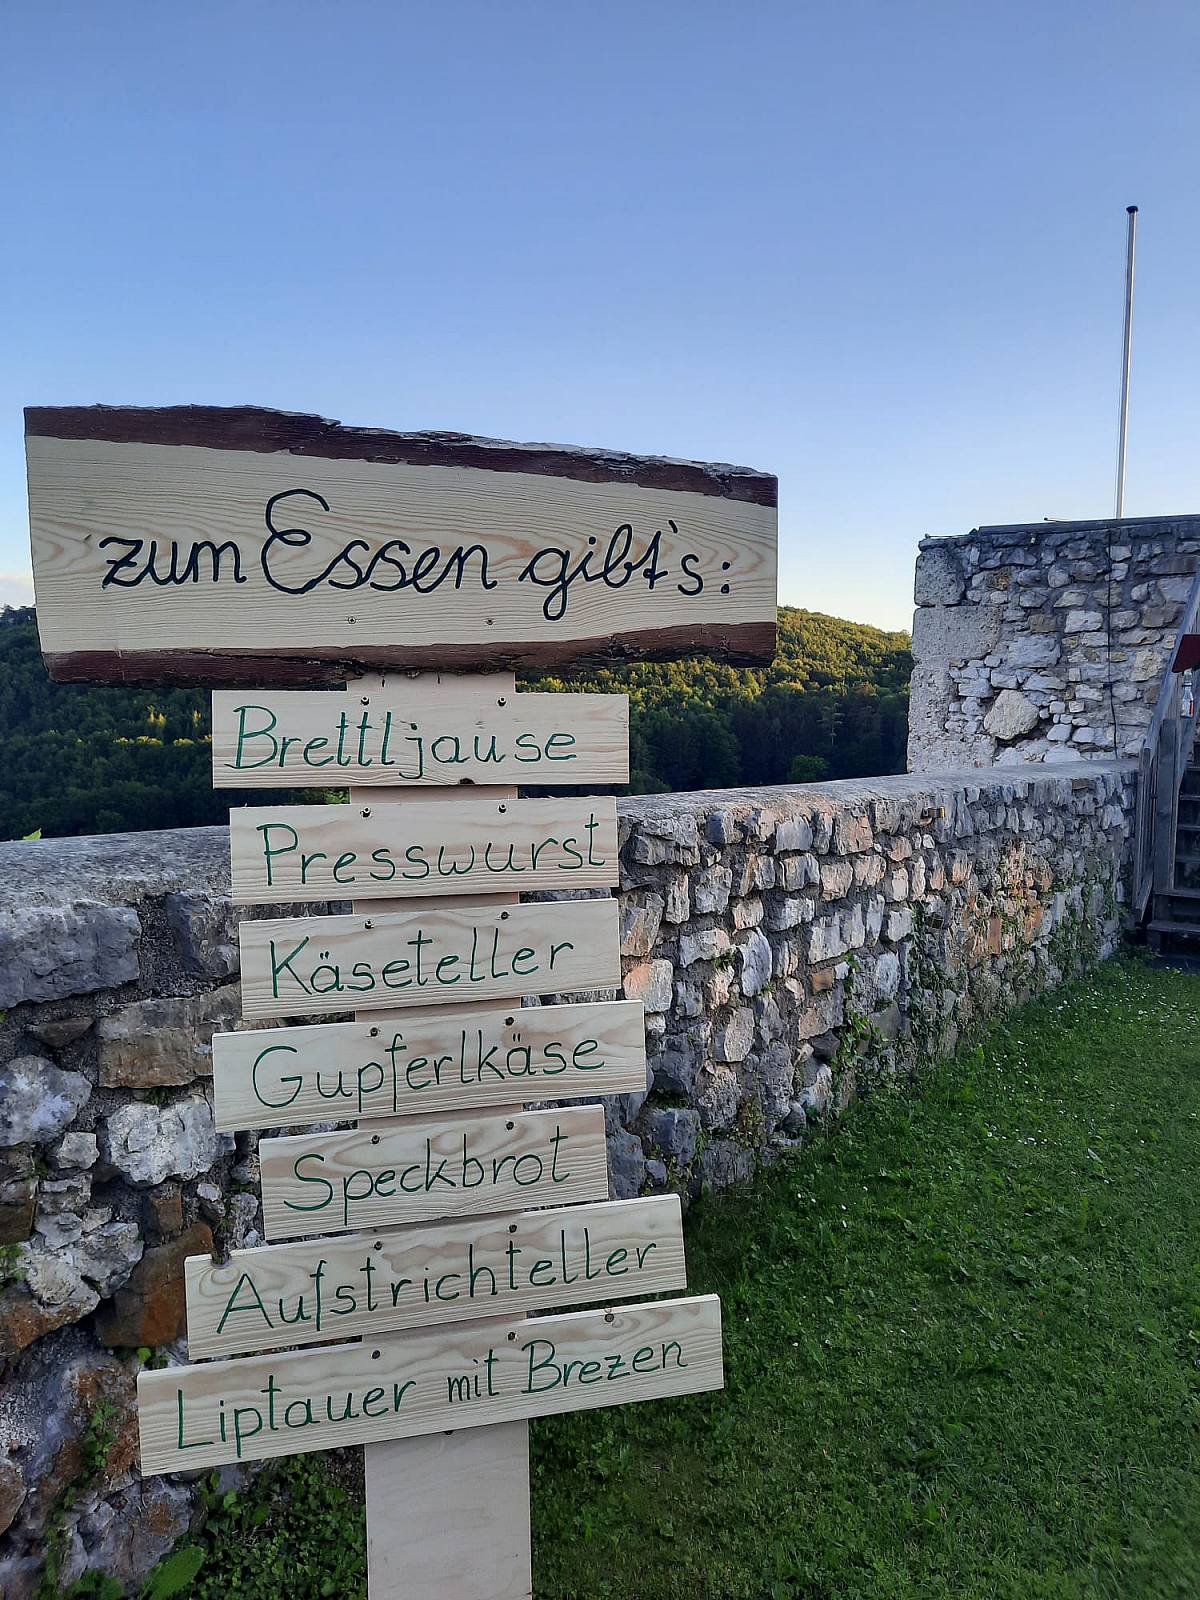 zum Essen gibt's:
Brettljause
Presswurst
Käseteller
Gupferlkäse
Speckbrot
Aufstrichteller
Liptauer mit Brezen